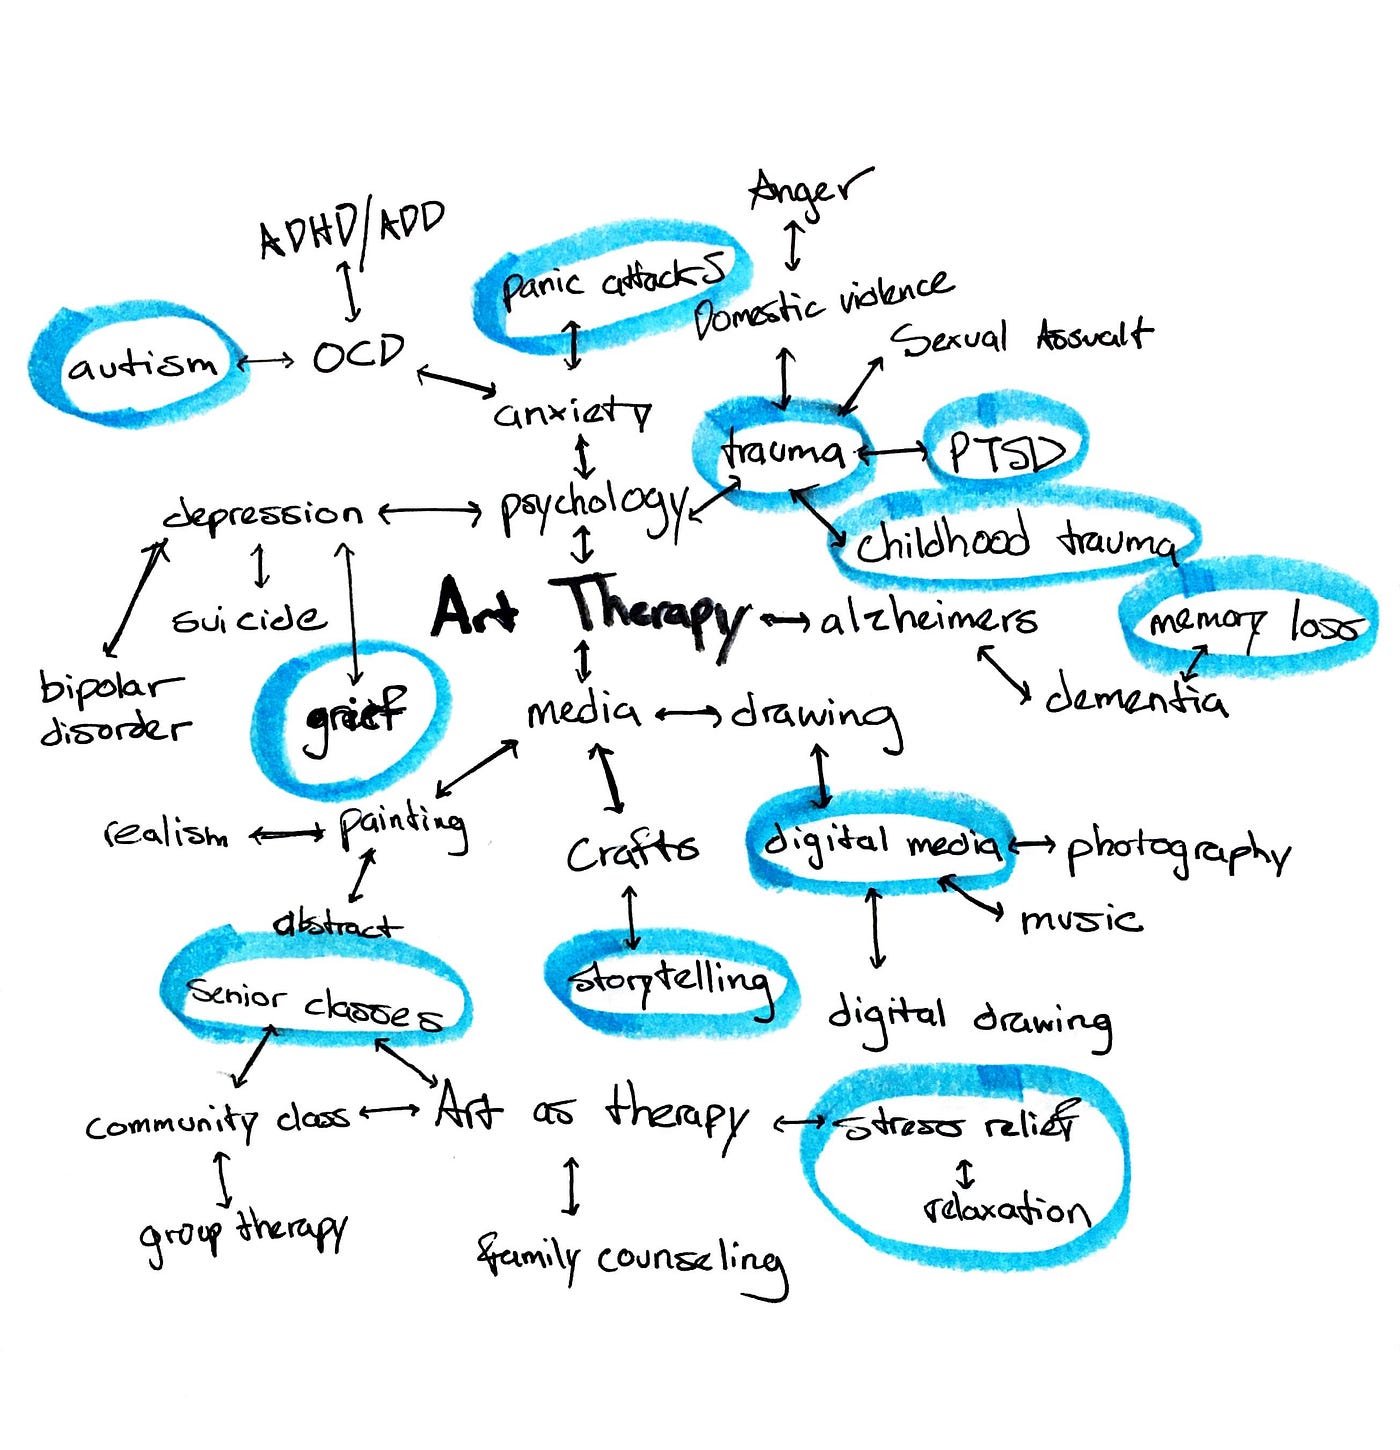 Anger
ADHD/ADD
panic attacks
Domestic violence
Sexual Assualt
autism
OCD
anxiety
trauma
PTSD
depression
psychology
childhood trauma
suicide
Art Therapy
alzheimers
memory loss
bipolar
disorder
grief
media
drawing
dementia
realism
painting
crafts
digital media
photography
abstract
music
senior classes
storytelling
digital drawing
community class
Art as therapy
stress relief
relaxation
group therapy
family counseling